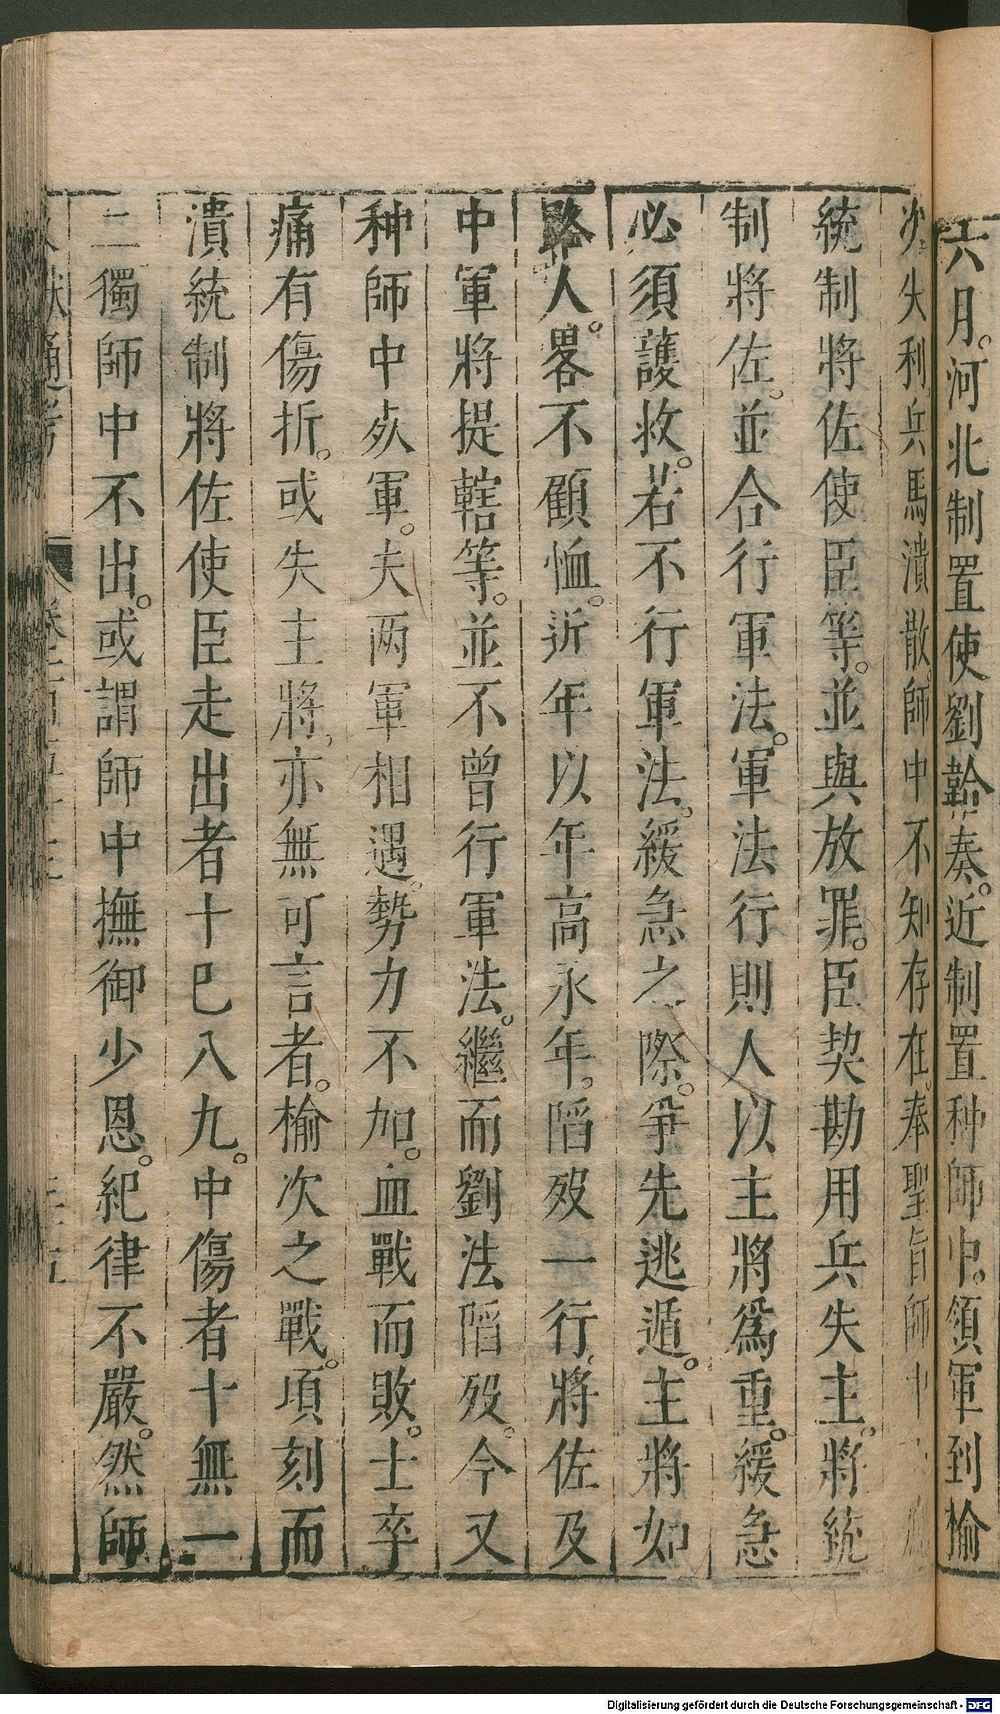 六月。河北制置使劉韐奏。近制置种師中。領軍到榆
次。失利。兵馬潰散。師中不知存在。奉聖旨師中
統制將佐使臣等。並與放罪。臣契勘用兵失主。將統
制將佐。並合行軍法。軍法行則人以主將爲重。緩急
必須護救。若不行軍法。緩急之際。爭先逃遁。主將如
路人。畧不顧恤。近年以年高永年。陷歿一行。將佐及
中軍將提轄等。並不曾行軍法。繼而劉法陷歿。今又
种師中歿軍。夫两軍相遇。勢力不加。血戰而敗。士卒
痛有傷折。或失主將。亦無可言者。榆次之戰。項刻而
潰統制將佐使臣走出者十巳八九。中傷者十無一
二獨師中不出。或謂師中撫御少恩。紀律不嚴。然師
獻通考
Digitalisierung gefördert durch die Deutsche Forschungsgemeinschaft - DFG